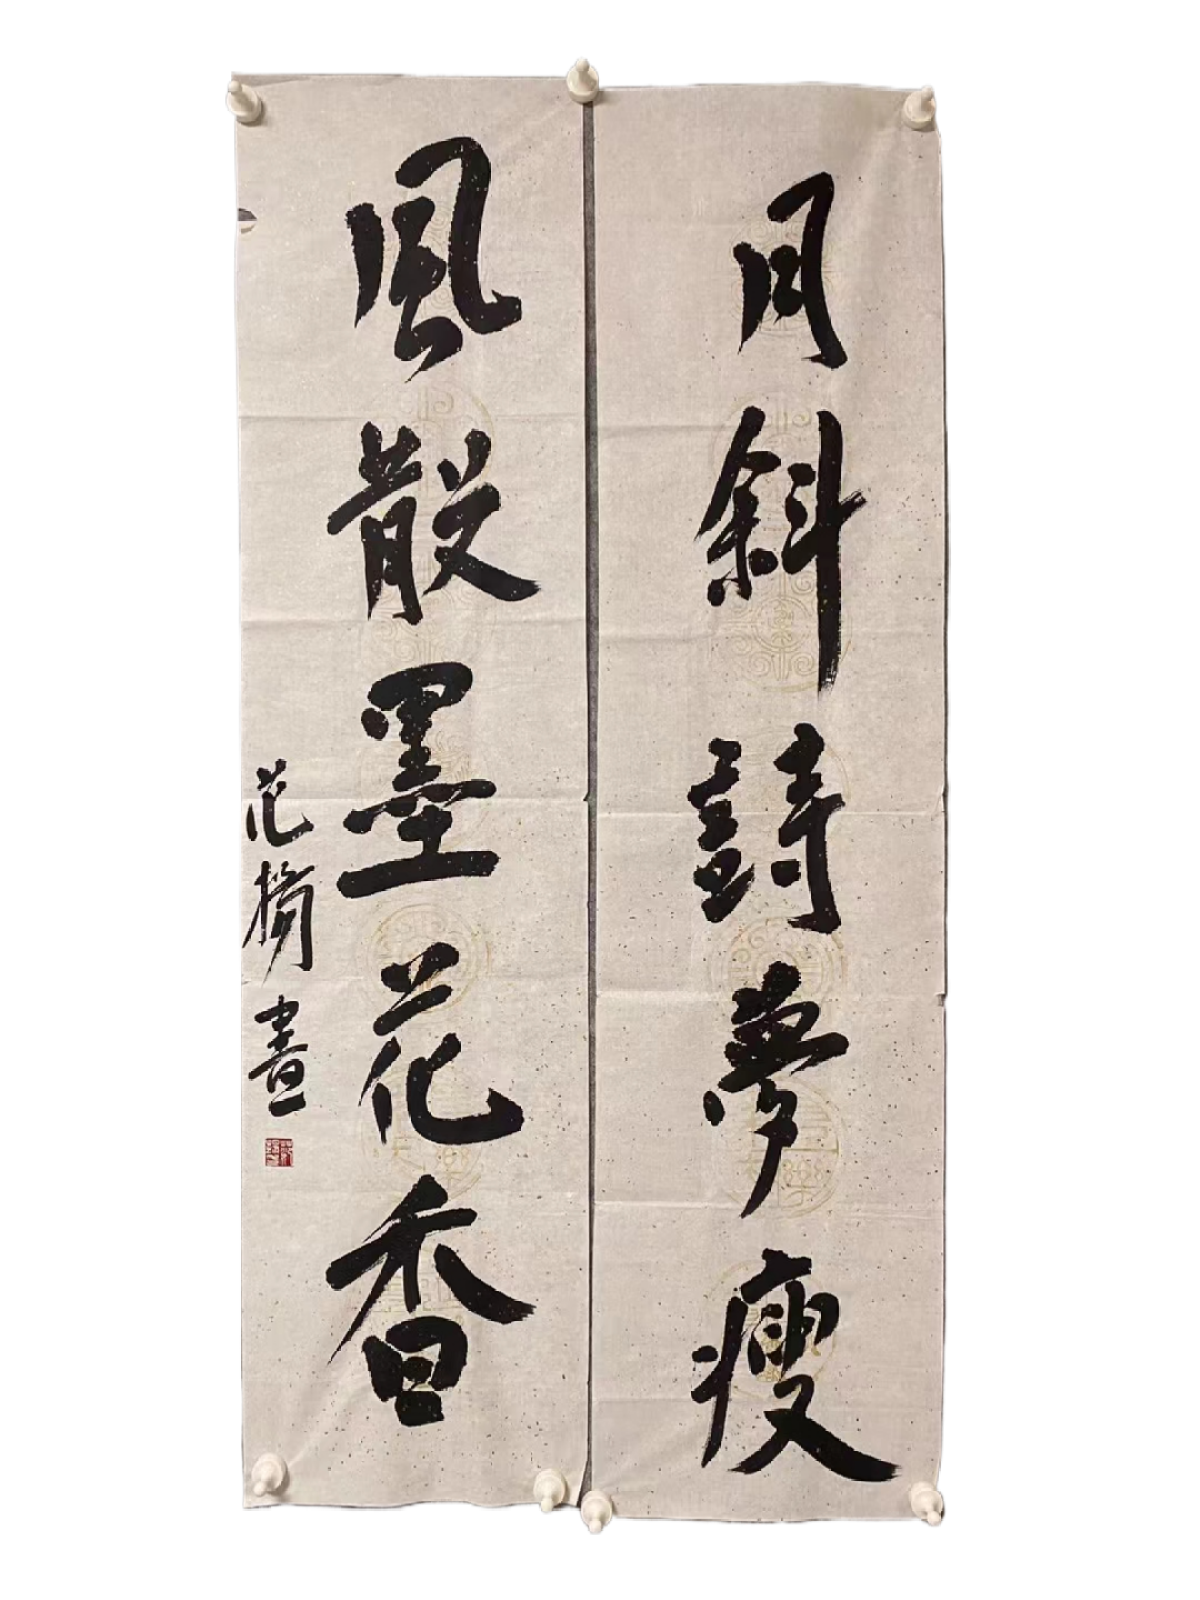 月斜詩夢瘦
風散墨花香
范 書